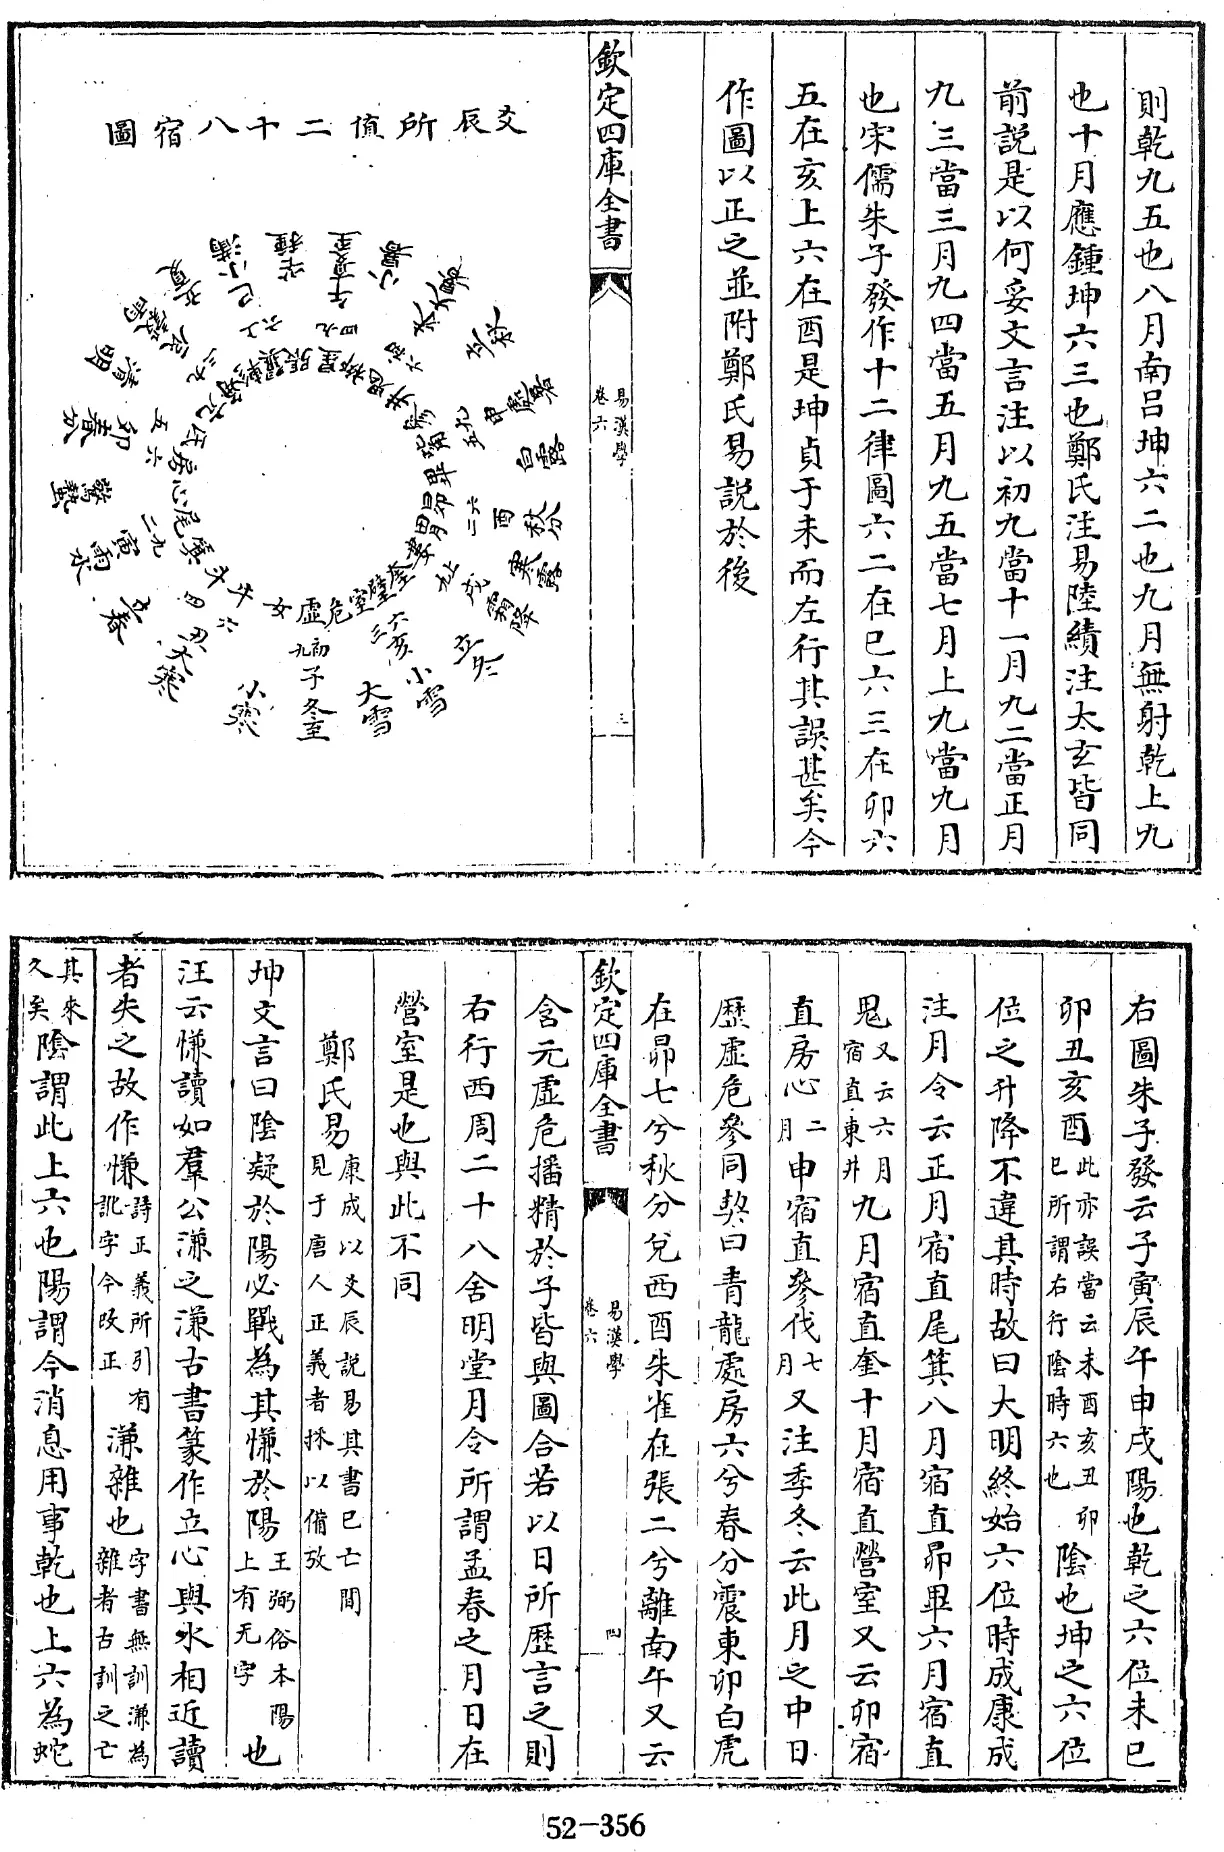 則乾九五也八月南呂坤六二也九月無射乾上九
也十月應鍾坤六三也鄭氏注易陸績注太玄皆同
前説是以何妥文言注以初九當十一月九二當正月
九三當三月九四當五月九五當七月上九當九月
也宋儒朱子發作十二律圖六二在巳六三在卯六
五在亥上六在酉是坤貞于未而左行其誤甚矣今
作圖以正之並附鄭氏易説於後
欽定四庫全書
易漢學
卷六
三
爻辰所值二十八宿圖
小滿
芒種
夏至
小暑
大暑
立秋
處暑
白露
秋分
寒露
霜降
立冬
小雪
大雪
冬至
小寒
大寒
立春
雨水
驚蟄
春分
清明
穀雨
立夏
巳
午
未
申
酉
戌
亥
子
丑
寅
卯
辰
上六
九四
初六
九五
六二
上九
六三
初九
六四
九二
六五
九三
角亢氐房心尾箕斗牛女虛危室壁奎婁胃昴畢觜參井鬼柳星張翼軫
右圖朱子發云子寅辰午申戌陽也乾之六位未巳
卯丑亥酉此亦誤當云未酉亥丑卯巳所謂右行陰時六也陰也坤之六位
位之升降不違其時故曰大明終始六位時成康成
注月令云正月宿直尾箕八月宿直昴畢六月宿直
鬼又云六月宿直東井九月宿直奎十月宿直營室又云卯宿
直房心二月申宿直參伐七月又注季冬云此月之中日
歷虛危參同契曰青龍處房六兮春分震東卯白虎
在昴七兮秋分兌西酉朱雀在張二兮離南午又云
欽定四庫全書
易漢學
卷六
四
含元虛危播精於子皆與圖合若以日所歷言之則
右行西周二十八舍明堂月令所謂孟春之月日在
營室是也與此不同
鄭氏易康成以爻辰説易其書已亡間見于唐人正義者採以備攷
坤文言曰陰疑於陽必戰為其慊於陽王弼俗本陽上有无字也
注云慊讀如羣公溓之溓古書篆作立心與水相近讀
者失之故作慊詩正義所引有訛字今改正溓雜也字書無訓溓為雜者古訓之亡
其來久矣陰謂此上六也陽謂今消息用事乾也上六為蛇
52-356